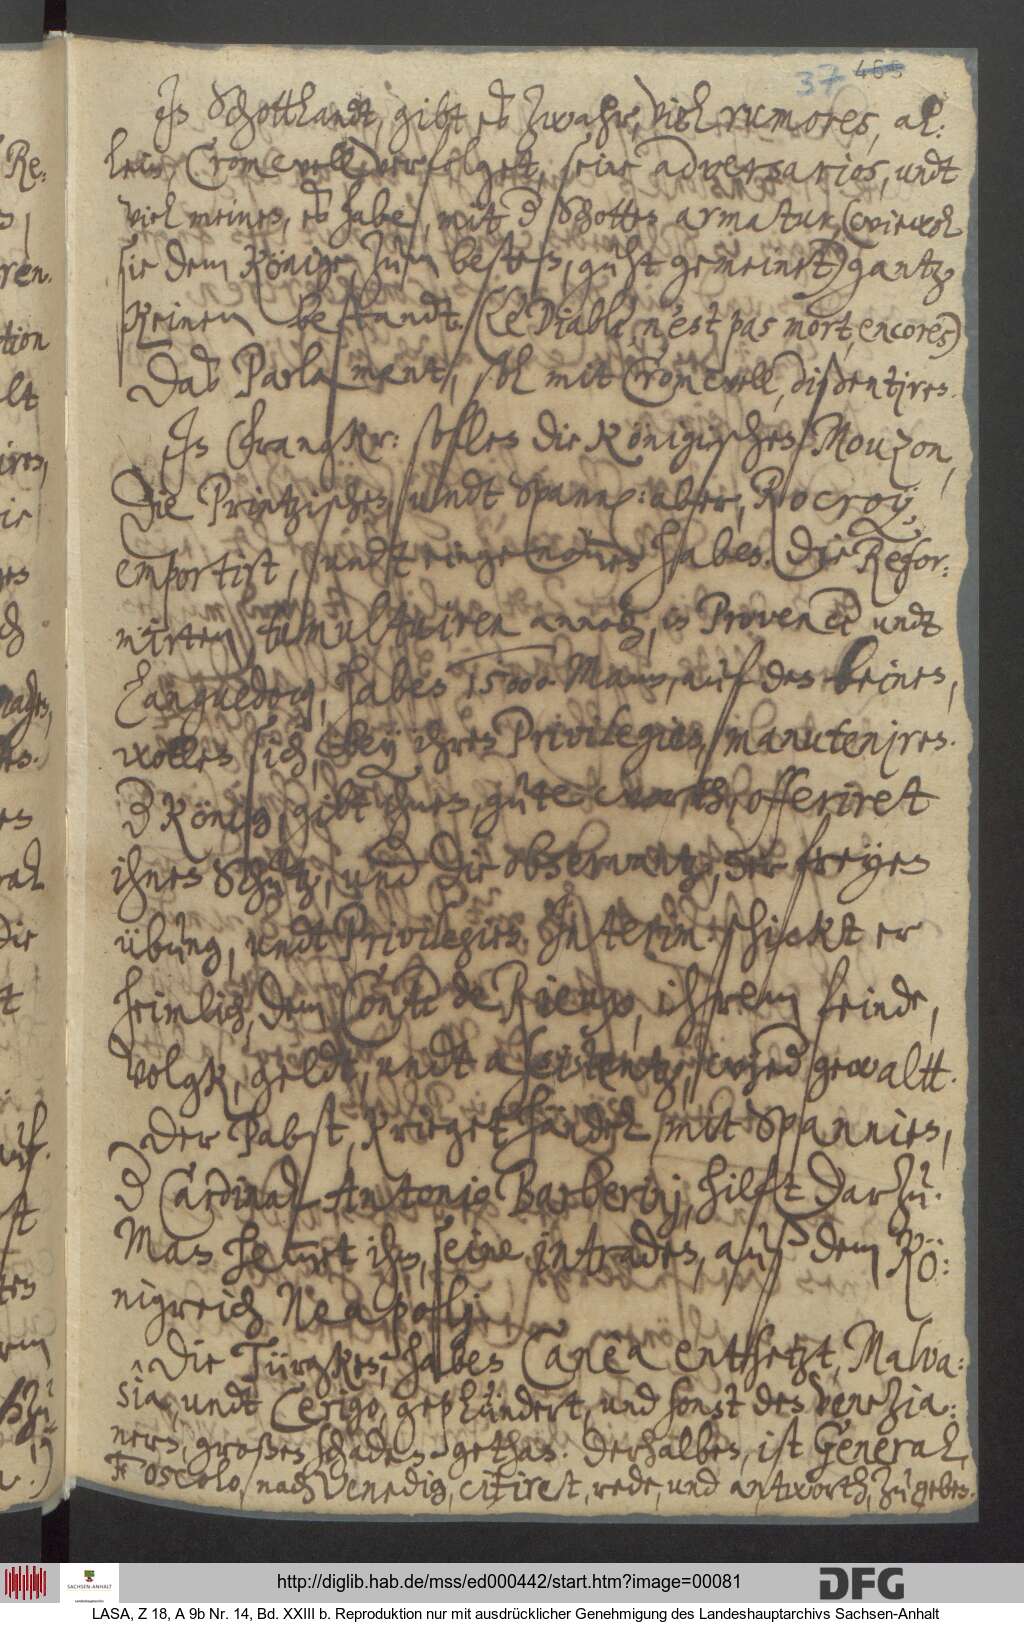 37 465
In Schottlandt, gibt es zwahr, viel rumores, al:
lein Cromwell verfolget, seine adversarios, undt
viel meinen, es habe, mit der Schotten armatur, (wiewol
sie dem Könige, zum besten, guht gemeinet) gantz
keinen bestandt. (Le Diable, n'est pas mort, encores)
Das Parlament, soll mit Cromwell, dissentiren.
In Franckr: sollen die Königischen, Mouzon,
die Printzischen, undt Spannischen: aber, Rocroy,
emportirt, undt eingenommen haben. Die Refor:
mirten, tumultuiren annoch, in Provence undt
Languedocq, haben 15000 Mann, auf den beinen,
wollen sich, bey ihren Privilegien, manuteniren.
der König, gibt ihnen, gute wortt, offeriret
ihnen Schutz, und die observantz, der freyen
übung, undt Privilegien. Interim: schickt er
heimlich, dem Conte de Rieux, ihrem feinde,
Volgk, geldt, undt assistentz, und gewaltt.
Der Pabst, krieget händel, mit Spannien,
der Cardinal Antonio Barberinj, hilft darzu.
Man hemmet ihm, seine intraden, auß dem Kö:
nigreich Neapolj.
Die Türgken, haben Canea entsetzt, Malva:
sia, undt Cerigo, geplündert, und sonst den Venezia:
nern, großen schaden gethan. derhalben, ist General,
Foscolo, nach Venedig, citiret, rede, und antworth, zu geben.
http://diglib.hab.de/mss/ed000442/start.htm?image=00081
SACHSEN-ANHALT
DFG
LASA, Z 18, A 9b Nr. 14, Bd. XXIII b. Reproduktion nur mit ausdrücklicher Genehmigung des Landeshauptarchivs Sachsen-Anhalt